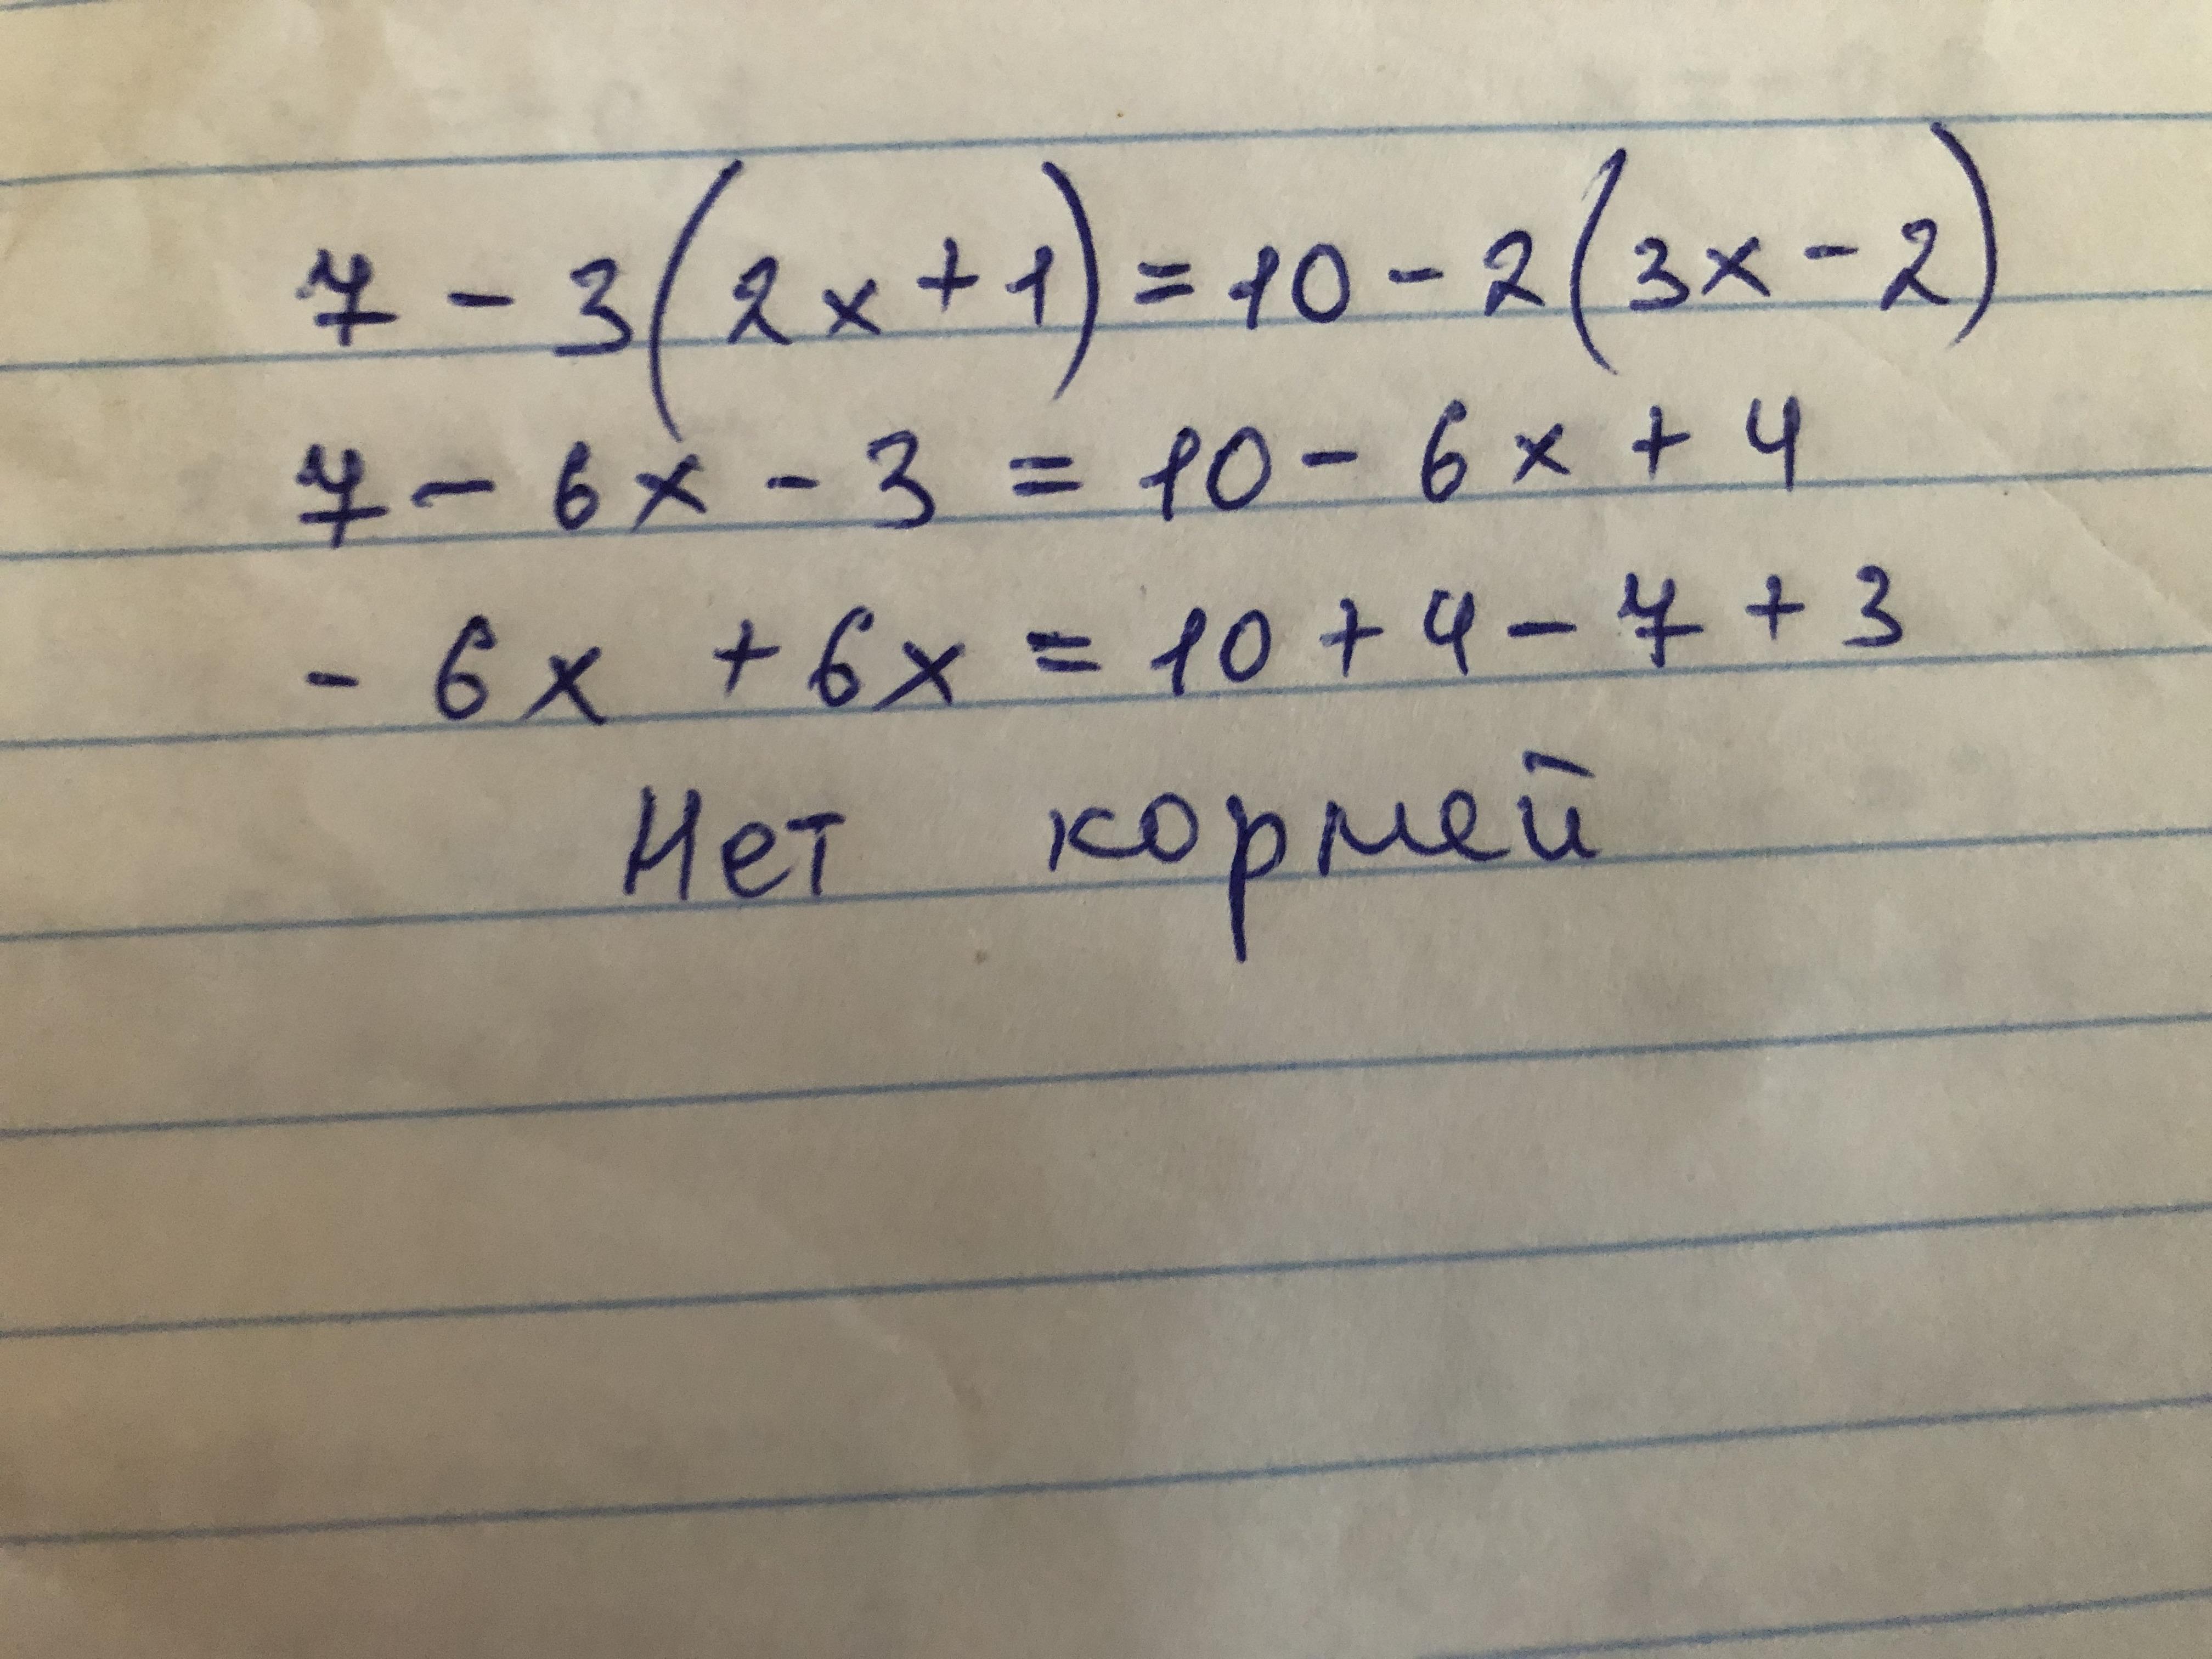 7 - 3(2x+1) = 10 - 2(3x - 2)
7 - 6x - 3 = 10 - 6x + 4
- 6x + 6x = 10 + 4 - 7 + 3
Нет корней